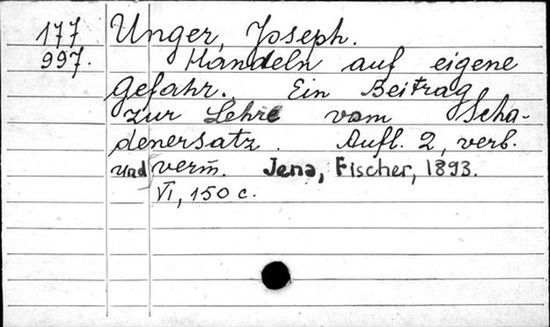 177 Unger, Joseph.
997. Handeln auf eigene
Gefahr. Ein Beitrag
zur Lehre vom Scha-
denersatz. Aufl. 2, verb.
und verm. Jena, Fischer, 1893.
VI, 150 c.